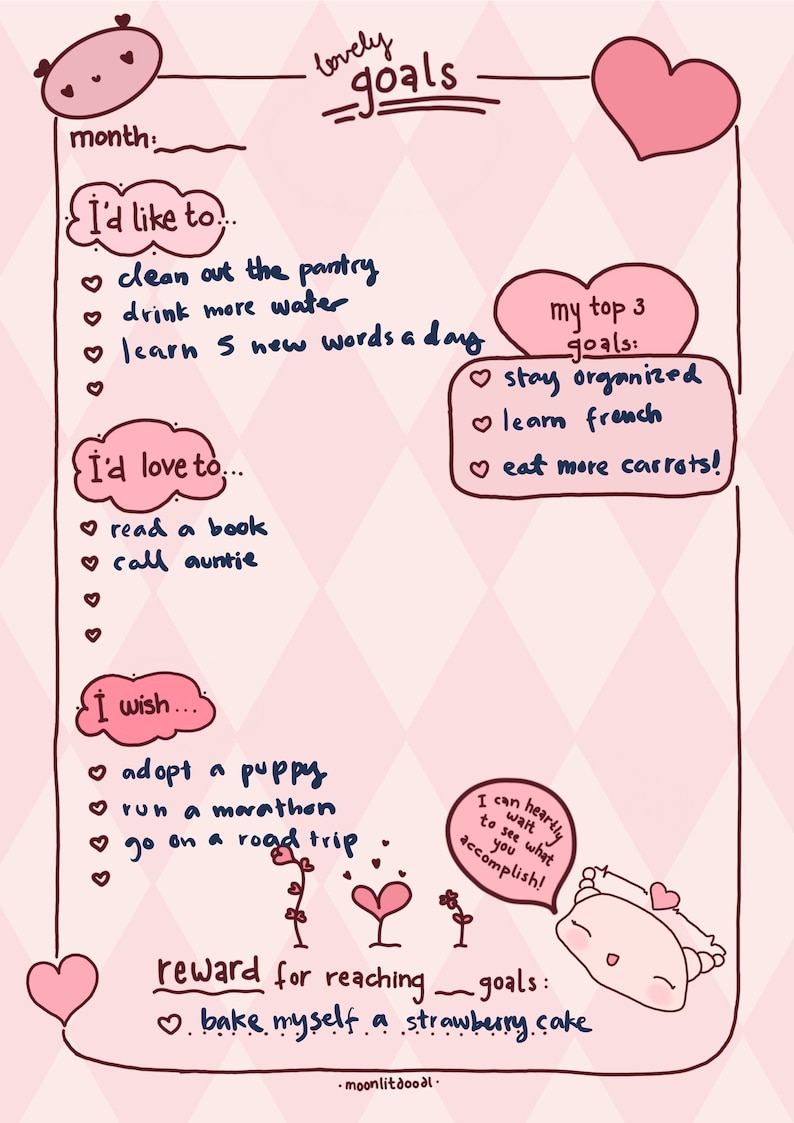 lovely
goals
month:
I'd like to...
clean out the pantry
drink more water
learn 5 new words a day
my top 3
goals:
stay organized
learn french
eat more carrots!
I'd love to...
read a book
call auntie
I wish...
adopt a puppy
run a marathon
go on a road trip
I can heartly
wait
to see what
you
accomplish!
reward for reaching __ goals:
bake myself a strawberry cake
·moonlitdoodl·